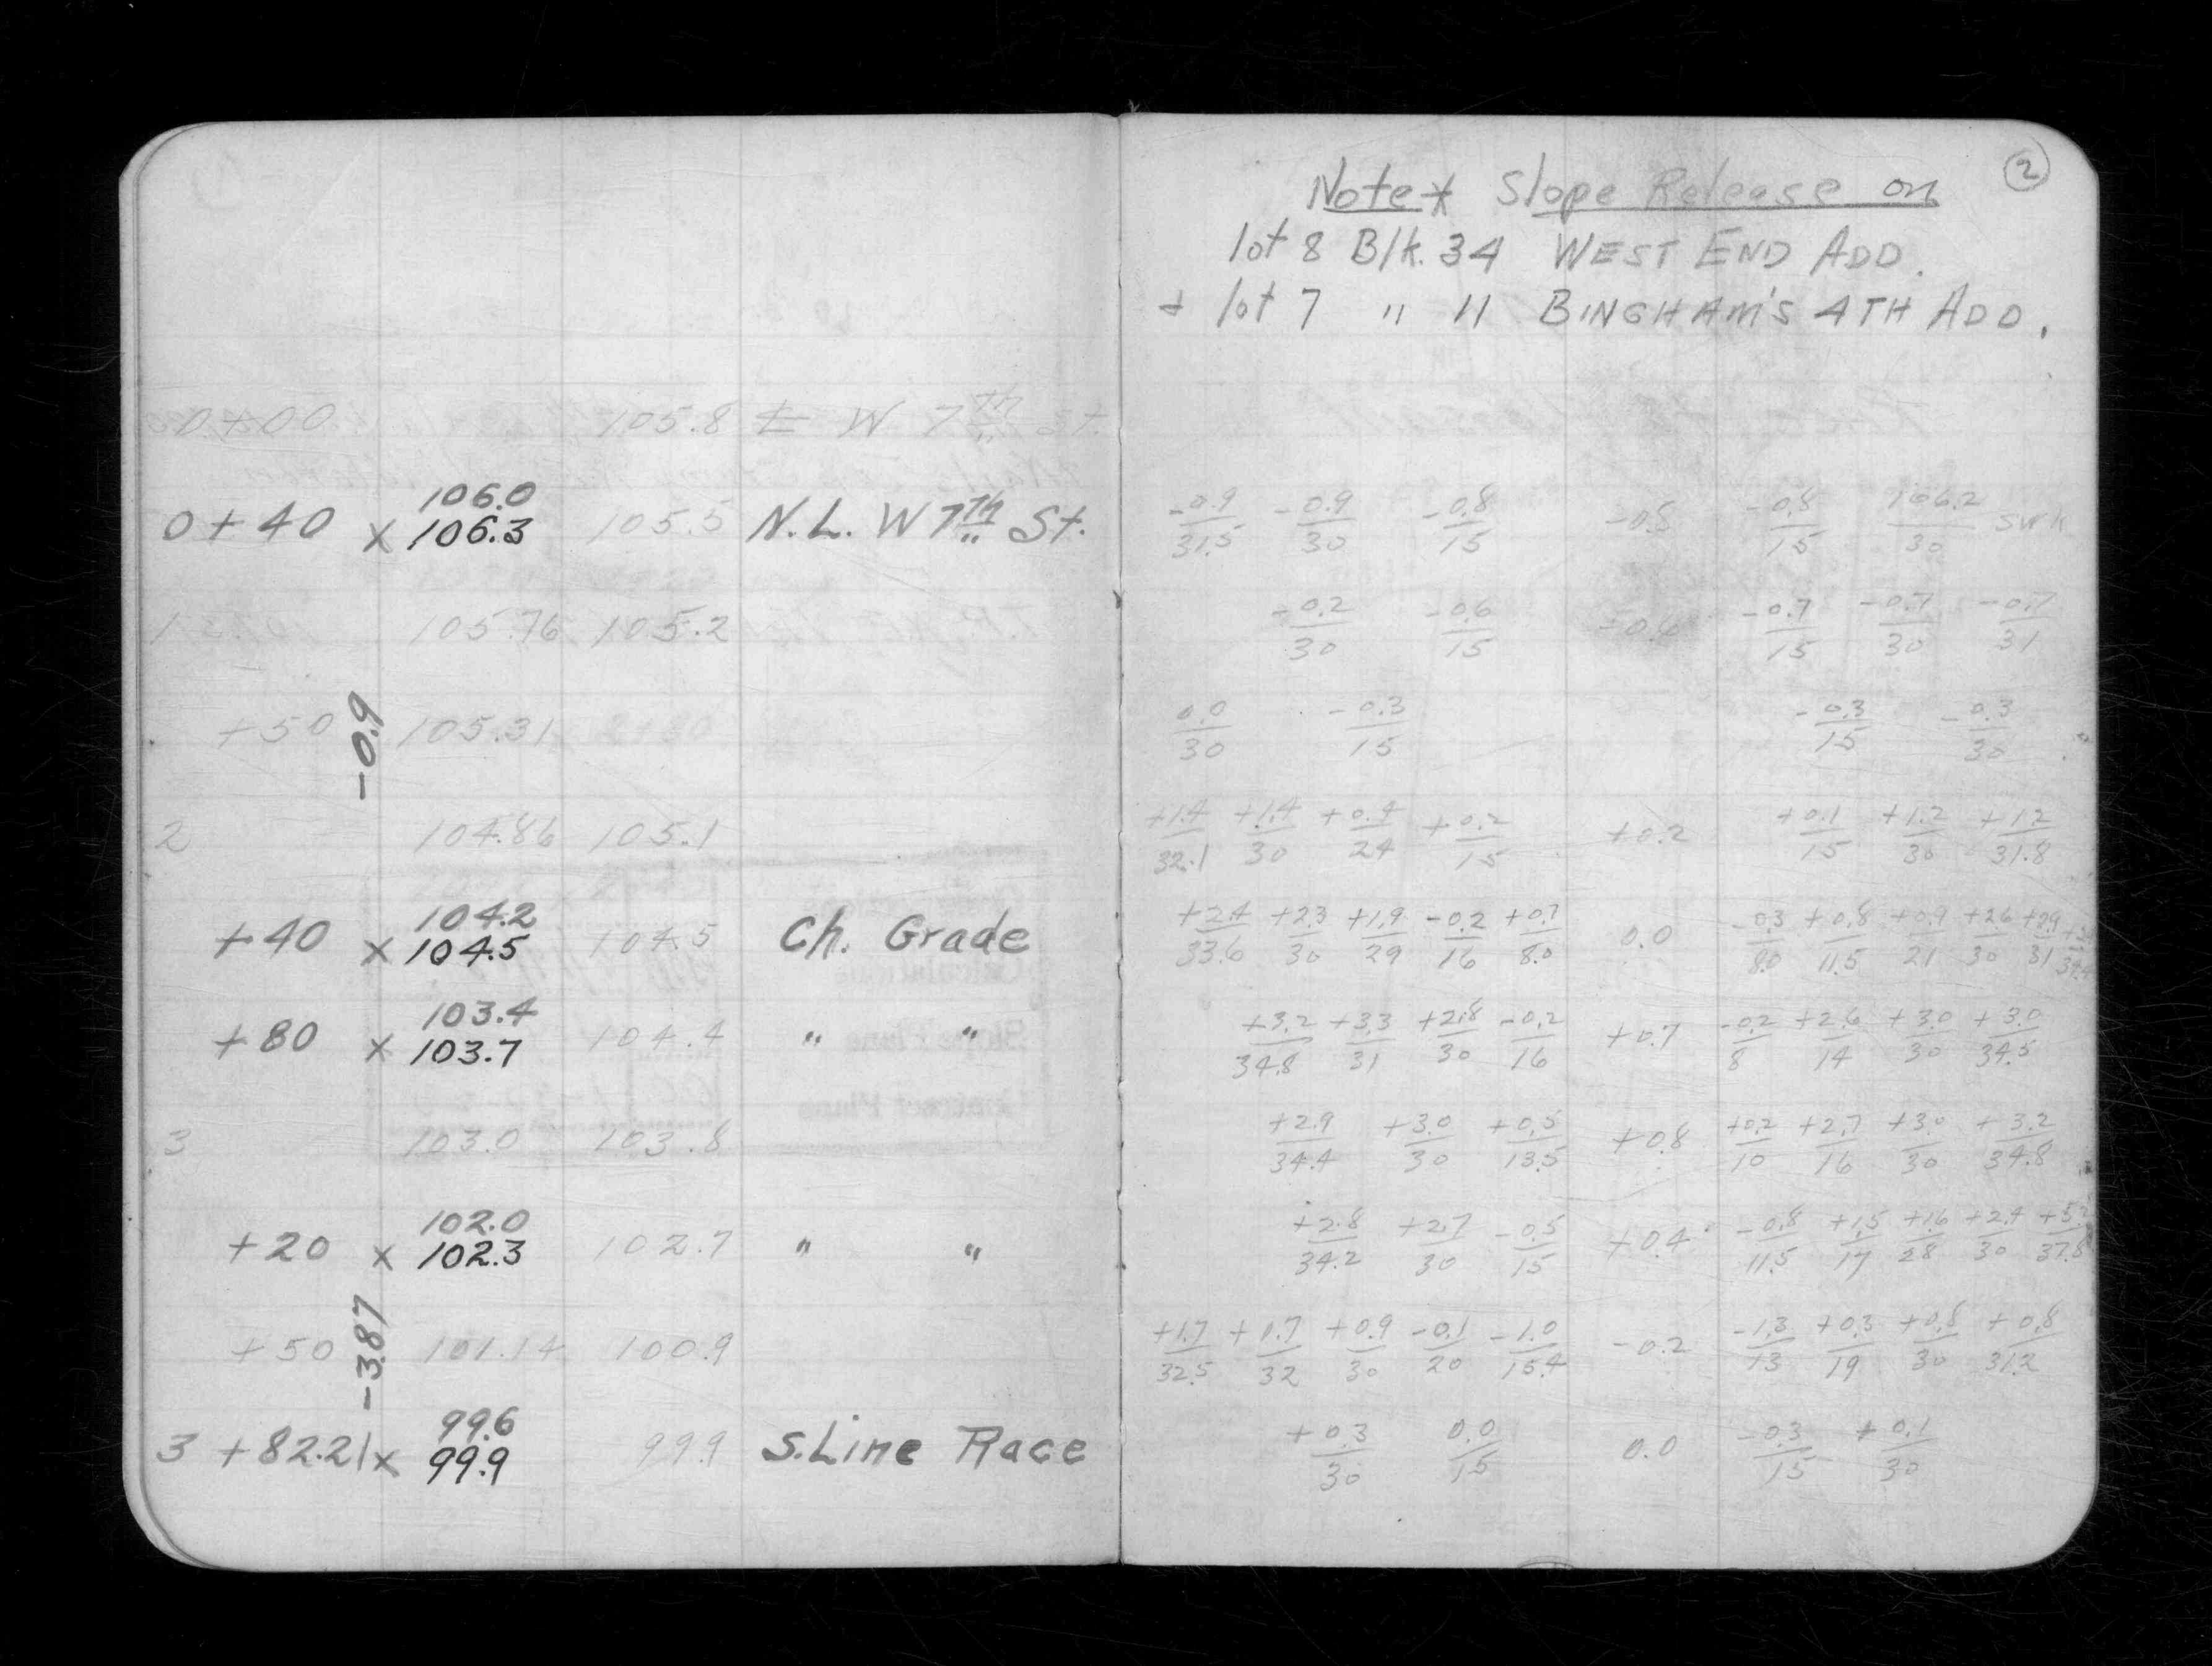 2
Note* Slope Release on
lot 8 Blk. 34 WEST END ADD.
+ lot 7 " 11 BINGHAM'S 4TH ADD.
0+00 105.8 ℄ W 7th St.
106.0
0+40 x 106.3 105.5 N.L. W 7th St. -0.9/31.5 -0.9/30 -0.8/15 -0.8/15 106.2/30
1 105.76 105.2 -0.2/30 -0.6/15 -0.6 -0.7/15 -0.7/30 -0.7/31
-0.9
+50 105.31 0.0/30 -0.3/15 -0.3/15 -0.3/30
2 104.86 105.1 +1.4/32.1 +1.4/30 +0.4/24 +0.2/15 +0.2 +0.1/15 +1.2/30 +1.2/31.8
104.2
+40 x 104.5 104.5 Ch. Grade +2.4/33.6 +2.3/30 +1.9/29 -0.2/16 +0.7/8.0 0.0 -0.3/8.0 +0.8/11.5 +0.9/21 +2.6/30 +2.9/31
103.4
+80 x 103.7 104.4 " " +3.2/34.8 +3.3/31 +2.8/30 -0.2/16 +0.7 -0.2/8 +2.6/14 +3.0/30 +3.0/34.5
3 103.0 103.8 +2.9/34.4 +3.0/30 +0.5/13.5 +0.8 +0.2/10 +2.7/16 +3.0/30 +3.2/34.8
102.0
+20 x 102.3 102.7 " " +2.8/34.2 +2.7/30 -0.5/15 +0.4 -0.8/11.5 +1.5/17 +1.6/28 +2.4/30
-3.87
+50 101.14 100.9 +1.7/32.5 +1.7/32 +0.9/30 -0.1/20 -1.0/15.4 -0.2 -1.3/13 +0.3/19 +0.8/30 +0.8/31.2
99.6
3 +82.21 x 99.9 99.9 S.Line Race +0.3/30 0.0/15 0.0 -0.3/15 +0.1/30